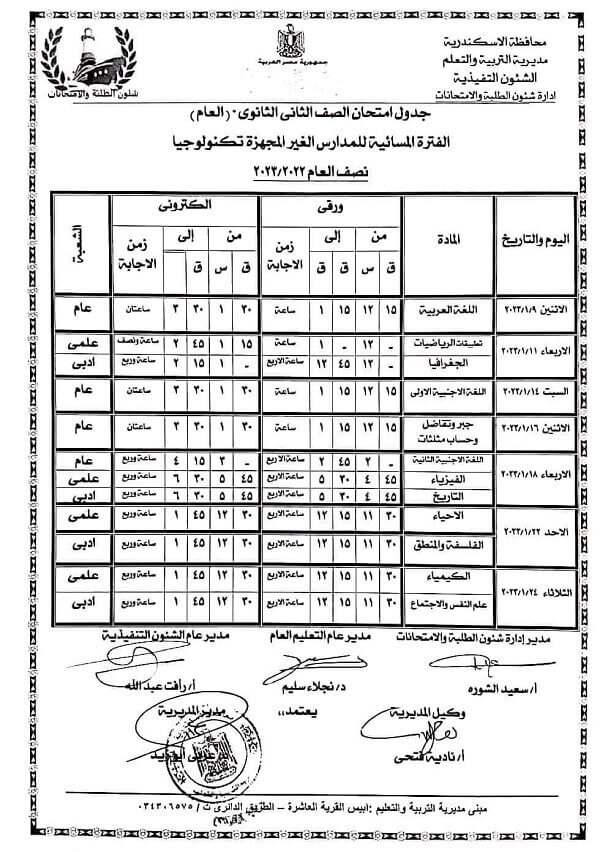 محافظة الاسكندرية
مديرية التربية والتعلم
الشئون التنفيذية
ادارة شئون الطلبة والامتحانات
جمهورية مصر العربية
شئون الطلبة والامتحانات
جدول امتحان الصف الثانى الثانوى "(العام)
الفترة المسائية للمدارس الغير المجهزة تكنولوجيا
نصف العام ٢٠٢٣/٢٠٢٢
اليوم والتاريخ المادة ورقى الكترونى الشعبة
من إلى زمن الاجابة من إلى زمن الاجابة
ق س ق ق ق س ق
الاثنين ٢٠٢٣/١/٩ اللغة العربية ١٥ ١٢ ١٥ ١ ساعة ٣٠ ١ ٣٠ ٣ ساعتان عام
الاربعاء ٢٠٢٣/١/١١ تطبيقات الرياضيات - ١٢ - ١ ساعة ١٥ ١ ٤٥ ٢ ساعة ونصف علمى
الجغرافيا - ١٢ ٤٥ ١٢ ساعة الاربع - ١ ١٥ ٢ ساعة وربع ادبى
السبت ٢٠٢٣/١/١٤ اللغة الاجنبية الاولى ١٥ ١٢ ١٥ ١ ساعة ٣٠ ١ ٣٠ ٣ ساعتان عام
الاثنين ٢٠٢٣/١/١٦ جبر وتفاضل وحساب مثلثات ١٥ ١٢ ١٥ ١ ساعة ٣٠ ١ ٣٠ ٣ ساعتان عام
الاربعاء ٢٠٢٣/١/١٨ اللغة الاجنبية الثانية - ٢ ٤٥ ٢ ساعة الاربع - ٣ ١٥ ٤ ساعة وربع عام
الفيزياء ٤٥ ٤ ٣٠ ٥ ساعة الاربع ٤٥ ٥ ٣٠ ٦ ساعة وربع علمى
التاريخ ٤٥ ٤ ٣٠ ٥ ساعة الاربع ٤٥ ٥ ٣٠ ٦ ساعة وربع أدبى
الاحد ٢٠٢٣/١/٢٢ الاحياء ٣٠ ١١ ١٥ ١٢ ساعة الاربع ٣٠ ١٢ ٤٥ ١ ساعة وربع علمى
الفلسفة والمنطق ٣٠ ١١ ١٥ ١٢ ساعة الاربع ٣٠ ١٢ ٤٥ ١ ساعة وربع ادبى
الثلاثاء ٢٠٢٣/١/٢٤ الكيمياء ٣٠ ١١ ١٥ ١٢ ساعة الاربع ٣٠ ١٢ ٤٥ ١ ساعة وربع علمى
علم النفس والاجتماع ٣٠ ١١ ١٥ ١٢ ساعة الاربع ٣٠ ١٢ ٤٥ ١ ساعة وربع أدبى
مدير إدارة شئون الطلبة والامتحانات مدير عام التعليم العام مدير عام الشئون التنفيذية
أ/ سعيد الشوره د/ نجلاء سليم أ/ رأفت عبد الله
وكيل المديرية يعتمد،، مدير المديرية
أ/ نادية فتحى عربى أبوزيد
مبنى مديرية التربية والتعليم : أبيس القرية العاشرة – الطريق الدائرى ت / ٠٣٤٣٠٦٥٧٥